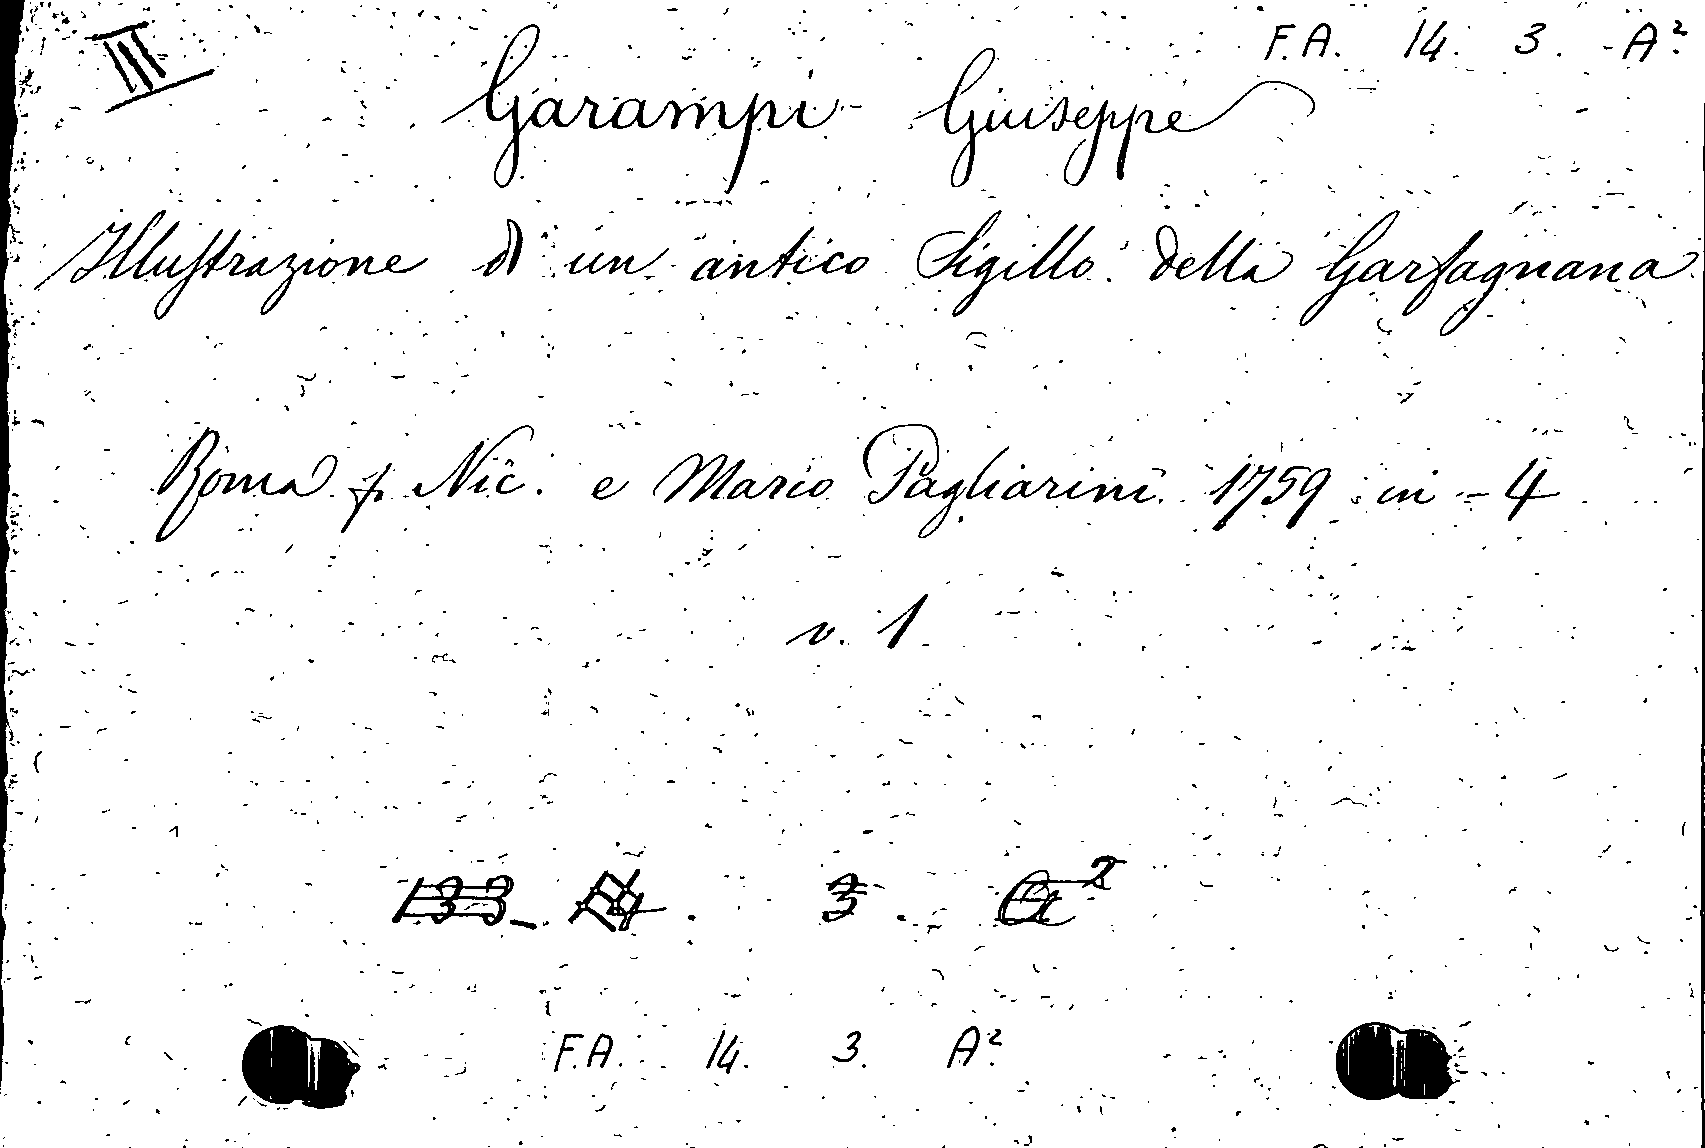 III
F.A. 14. 3. A²
Garampi Giuseppe
Illustrazione di un antico Sigillo della Garfagnana
Roma p. Nic. e Mario Pagliarini 1759 in-4
v. 1
133 14. 3. A²
F.A. 14. 3. A²